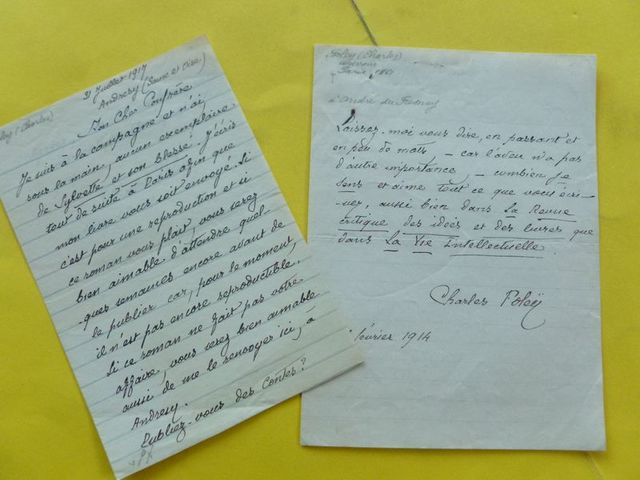 31 Juillet 1917
Andresy (Seine et Oise)
(Charles)
Mon Cher Confrère
Je suis à la campagne et n'ai,
sous la main, aucun exemplaire
de Sylvette et son blessé. J'écris
tout de suite à Paris afin que
mon livre vous soit envoyé. Si
c'est pour une reproduction et si
ce roman vous plait, vous serez
bien aimable d'attendre quel-
ques semaines encore avant de
le publier car, pour le moment,
il n'est pas encore reproductible.
Si ce roman ne fait pas votre
affaire, vous serez bien aimable
aussi de me le renvoyer ici, a
Andresy.
Publiez-vous des Contes?
Foley (Charles)
écrivain
Paris
à André du Fresnois
Laissez-moi vous dire, en passant et
en peu de mots, – car l'aveu n'a pas
d'autre importance, – combien je
sens et aime tout ce que vous écri-
vez, aussi bien dans la Revue
critique des idées et des livres que
dans La Vie Intellectuelle.
Charles Foleÿ
février 1914